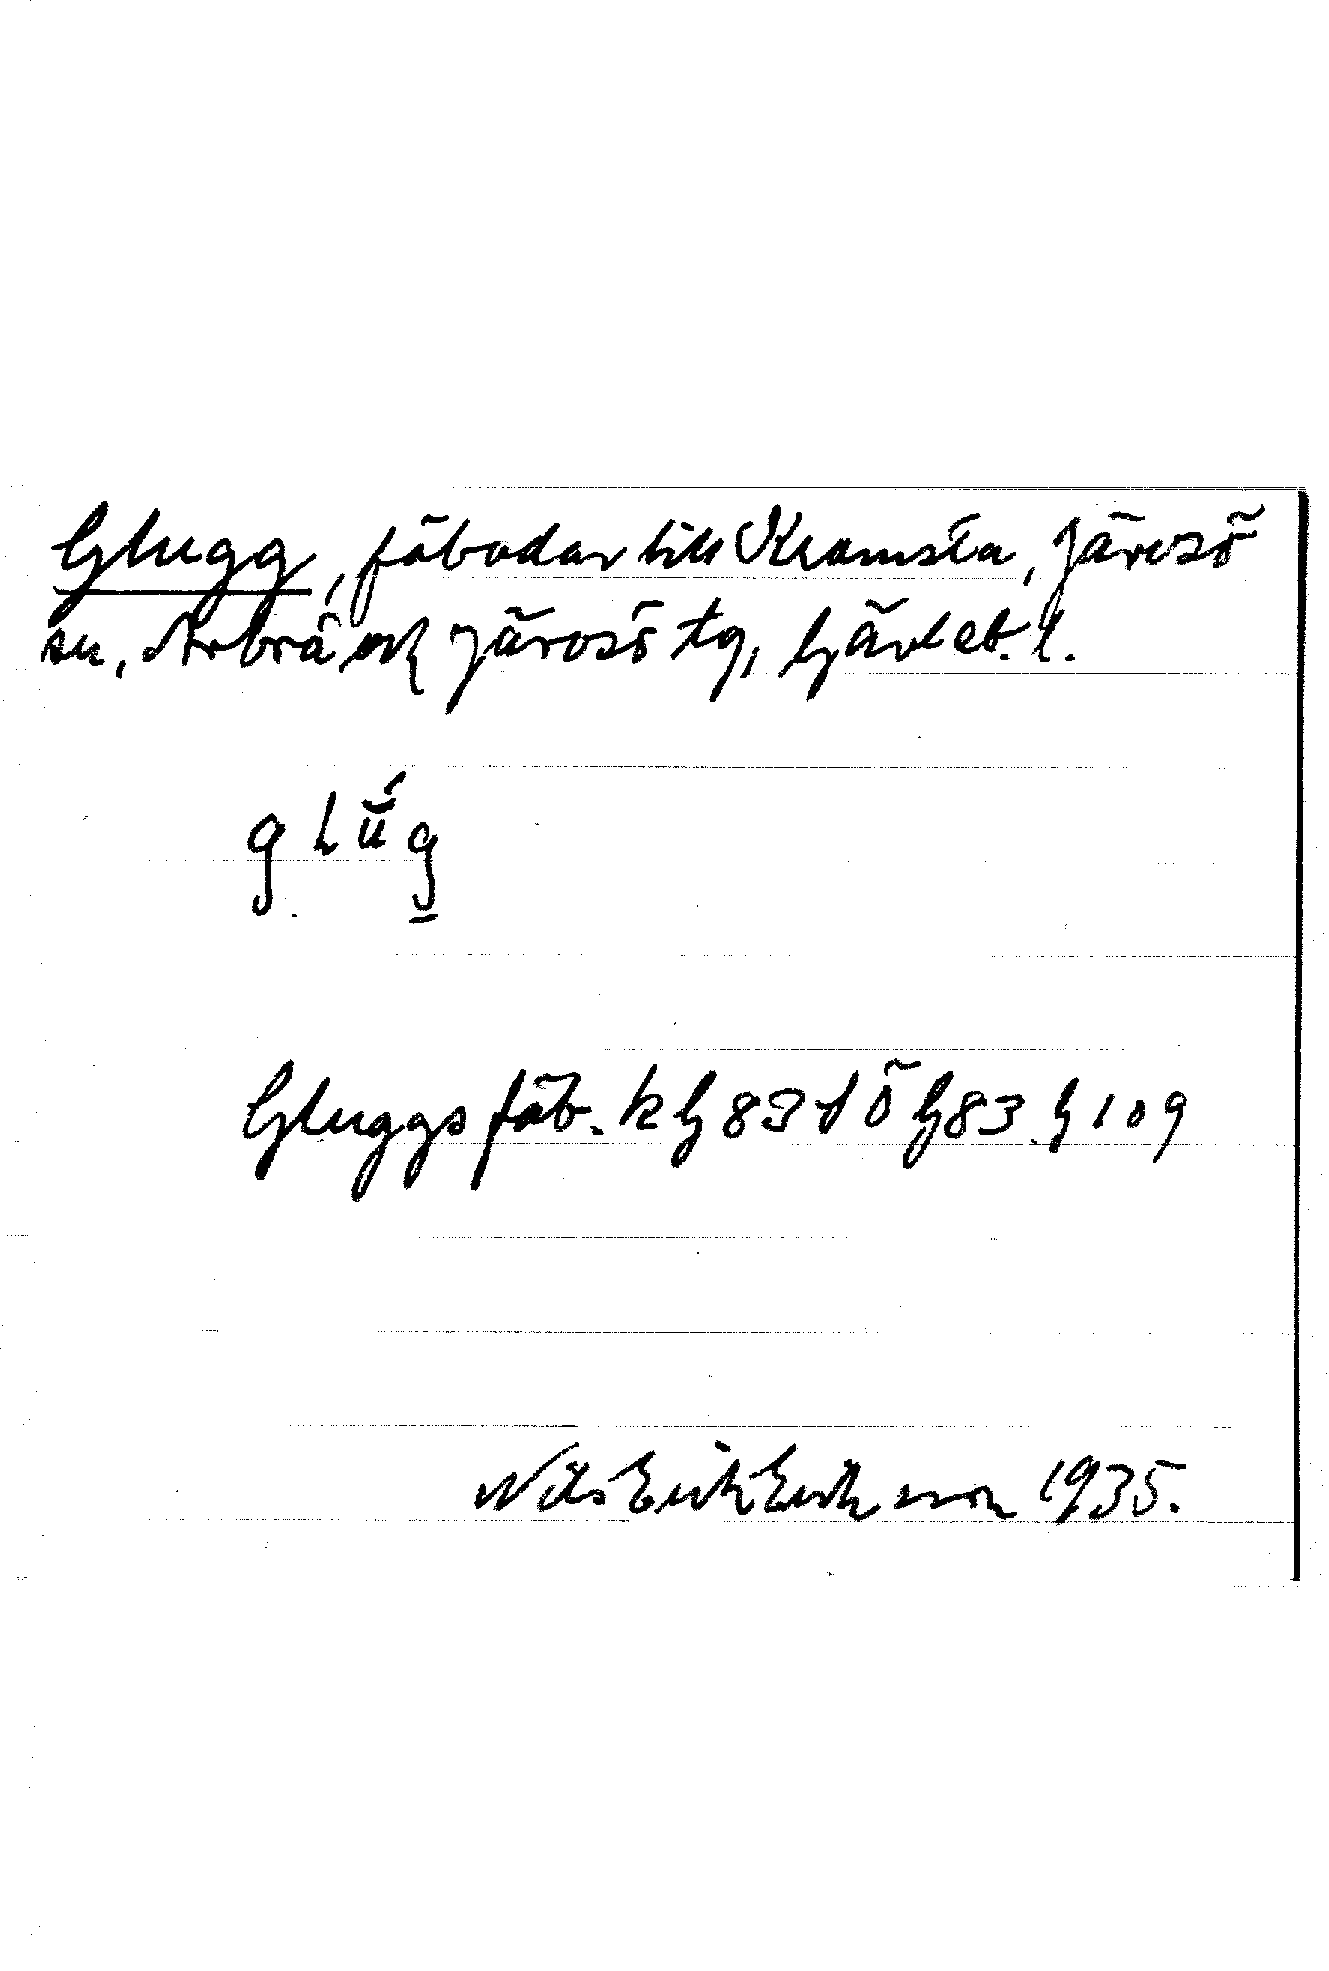 Glugg, fäbodar till Kramsta, Järvsö
sn, Arbrå och Järvsö tg, Gävleb. l.
glŭ́g̲
Gluggs fäb. k G 83 d Ö G 83 G 109
Nils Erik Eriksson 1935.